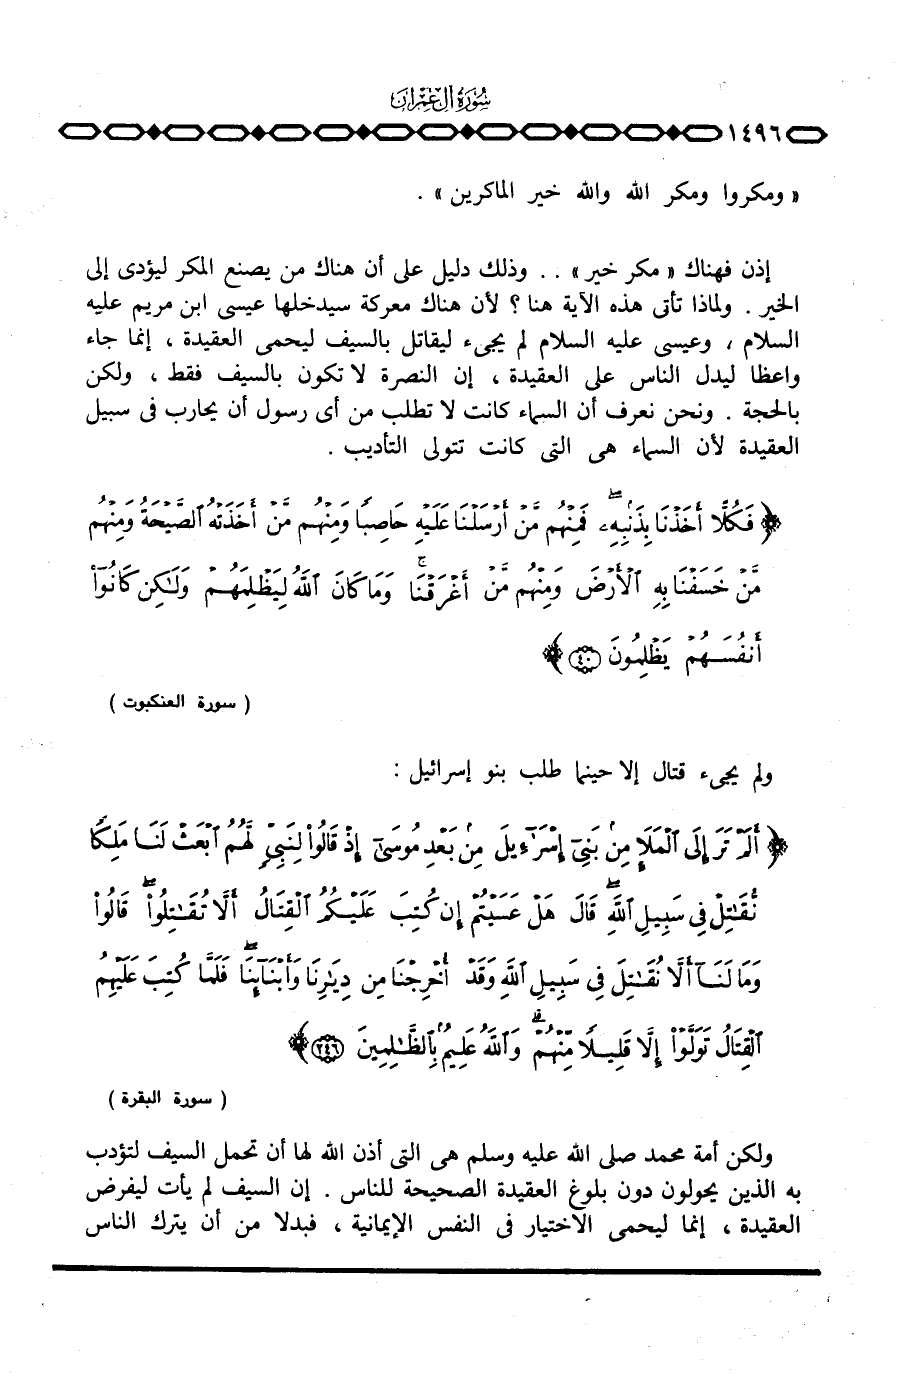 سُورَةُ آلِ عِمْرَانَ
١٤٩٦
« ومكروا ومكر الله والله خير الماكرين » .
إذن فهناك « مكر خير » . . وذلك دليل على أن هناك من يصنع المكر ليؤدى إلى
الخير . ولماذا تأتى هذه الآية هنا ؟ لأن هناك معركة سيدخلها عيسى ابن مريم عليه
السلام ، وعيسى عليه السلام لم يجىء ليقاتل بالسيف ليحمى العقيدة ، إنما جاء
واعظا ليدل الناس على العقيدة ، إن النصرة لا تكون بالسيف فقط ، ولكن
بالحجة . ونحن نعرف أن السماء كانت لا تطلب من أى رسول أن يحارب فى سبيل
العقيدة لأن السماء هى التى كانت تتولى التأديب .
﴿ فَكُلًّا أَخَذْنَا بِذَنۢبِهِۦۖ فَمِنْهُم مَّنْ أَرْسَلْنَا عَلَيْهِ حَاصِبًا وَمِنْهُم مَّنْ أَخَذَتْهُ ٱلصَّيْحَةُ وَمِنْهُم
مَّنْ خَسَفْنَا بِهِ ٱلْأَرْضَ وَمِنْهُم مَّنْ أَغْرَقْنَاۚ وَمَا كَانَ ٱللَّهُ لِيَظْلِمَهُمْ وَلَٰكِن كَانُوٓا۟
أَنفُسَهُمْ يَظْلِمُونَ ﴿٤٠﴾ ﴾
( سورة العنكبوت )
ولم يجىء قتال إلا حينما طلب بنو إسرائيل :
﴿ أَلَمْ تَرَ إِلَى ٱلْمَلَإِ مِنۢ بَنِىٓ إِسْرَٰٓءِيلَ مِنۢ بَعْدِ مُوسَىٰٓ إِذْ قَالُوا۟ لِنَبِىٍّ لَّهُمُ ٱبْعَثْ لَنَا مَلِكًا
نُّقَٰتِلْ فِى سَبِيلِ ٱللَّهِۖ قَالَ هَلْ عَسَيْتُمْ إِن كُتِبَ عَلَيْكُمُ ٱلْقِتَالُ أَلَّا تُقَٰتِلُوا۟ۖ قَالُوا۟
وَمَا لَنَآ أَلَّا نُقَٰتِلَ فِى سَبِيلِ ٱللَّهِ وَقَدْ أُخْرِجْنَا مِن دِيَٰرِنَا وَأَبْنَآئِنَاۖ فَلَمَّا كُتِبَ عَلَيْهِمُ
ٱلْقِتَالُ تَوَلَّوْا۟ إِلَّا قَلِيلًا مِّنْهُمْۗ وَٱللَّهُ عَلِيمٌۢ بِٱلظَّٰلِمِينَ ﴿٢٤٦﴾ ﴾
( سورة البقرة )
ولكن أمة محمد صلى الله عليه وسلم هى التى أذن الله لها أن تحمل السيف لتؤدب
به الذين يحولون دون بلوغ العقيدة الصحيحة للناس . إن السيف لم يأت ليفرض
العقيدة ، إنما ليحمى الاختيار فى النفس الإيمانية ، فبدلا من أن يترك الناس